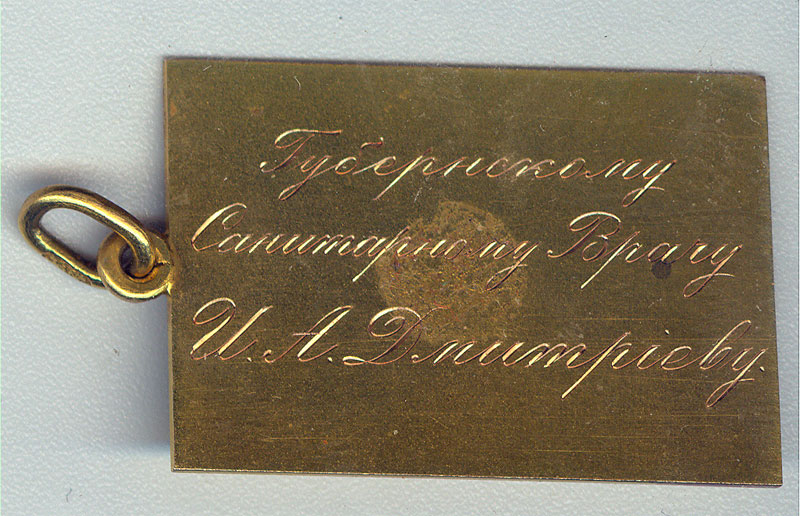 Губернскому
Санитарному Врачу
И. А. Дмитріеву.